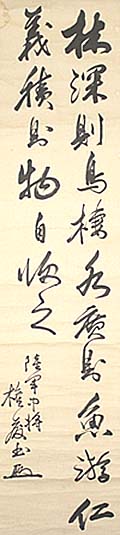 林深則鳥棲水廣則魚游仁
義積則物自歸之
陸軍中将
書